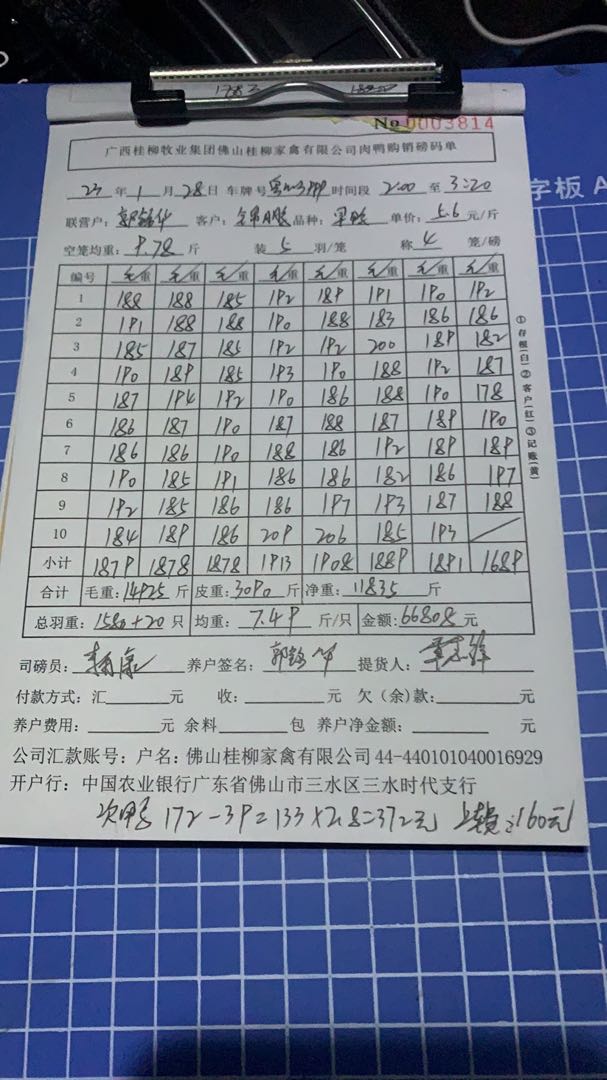 No 0003814
广西桂柳牧业集团佛山桂柳家禽有限公司肉鸭购销磅码单
字板 A
23年1月28日 车牌号 时间段 2:00 至 3:20
联营户: 客户: 品种: 单价: 5.6 元/斤
空笼均重: 9.78 斤 装 5 羽/笼 称 4 笼/磅
编号 毛重 毛重 毛重 毛重 毛重 毛重 毛重 毛重
1 188 188 185 192 189 191 190 192
2 191 188 188 190 188 183 186 186
3 185 187 185 192 192 200 189 182
4 190 189 185 193 190 188 192 187
5 187 194 192 190 186 188 190 178
6 186 187 190 187 188 187 189 190
7 186 186 190 188 186 192 189 189
8 190 185 191 186 186 182 186 197
9 192 185 186 186 197 193 187 188
10 184 189 186 209 206 185 193 /
小计 1879 1878 1878 1913 1908 1889 1891 1689
合计 毛重: 14925 斤 皮重: 3090 斤 净重: 11835 斤
总羽重: 1580+20 只 均重: 7.49 斤/只 金额: 66808 元
①存根(白)②客户(红)③记账(黄)
司磅员: 养户签名: 提货人:
付款方式: 汇 元 收: 元 欠(余)款: 元
养户费用: 元 余料 包 养户净金额: 元
公司汇款账号: 户名: 佛山桂柳家禽有限公司 44-440101040016929
开户行: 中国农业银行广东省佛山市三水区三水时代支行
次鸭 172-39=133×2.8=372元 160元